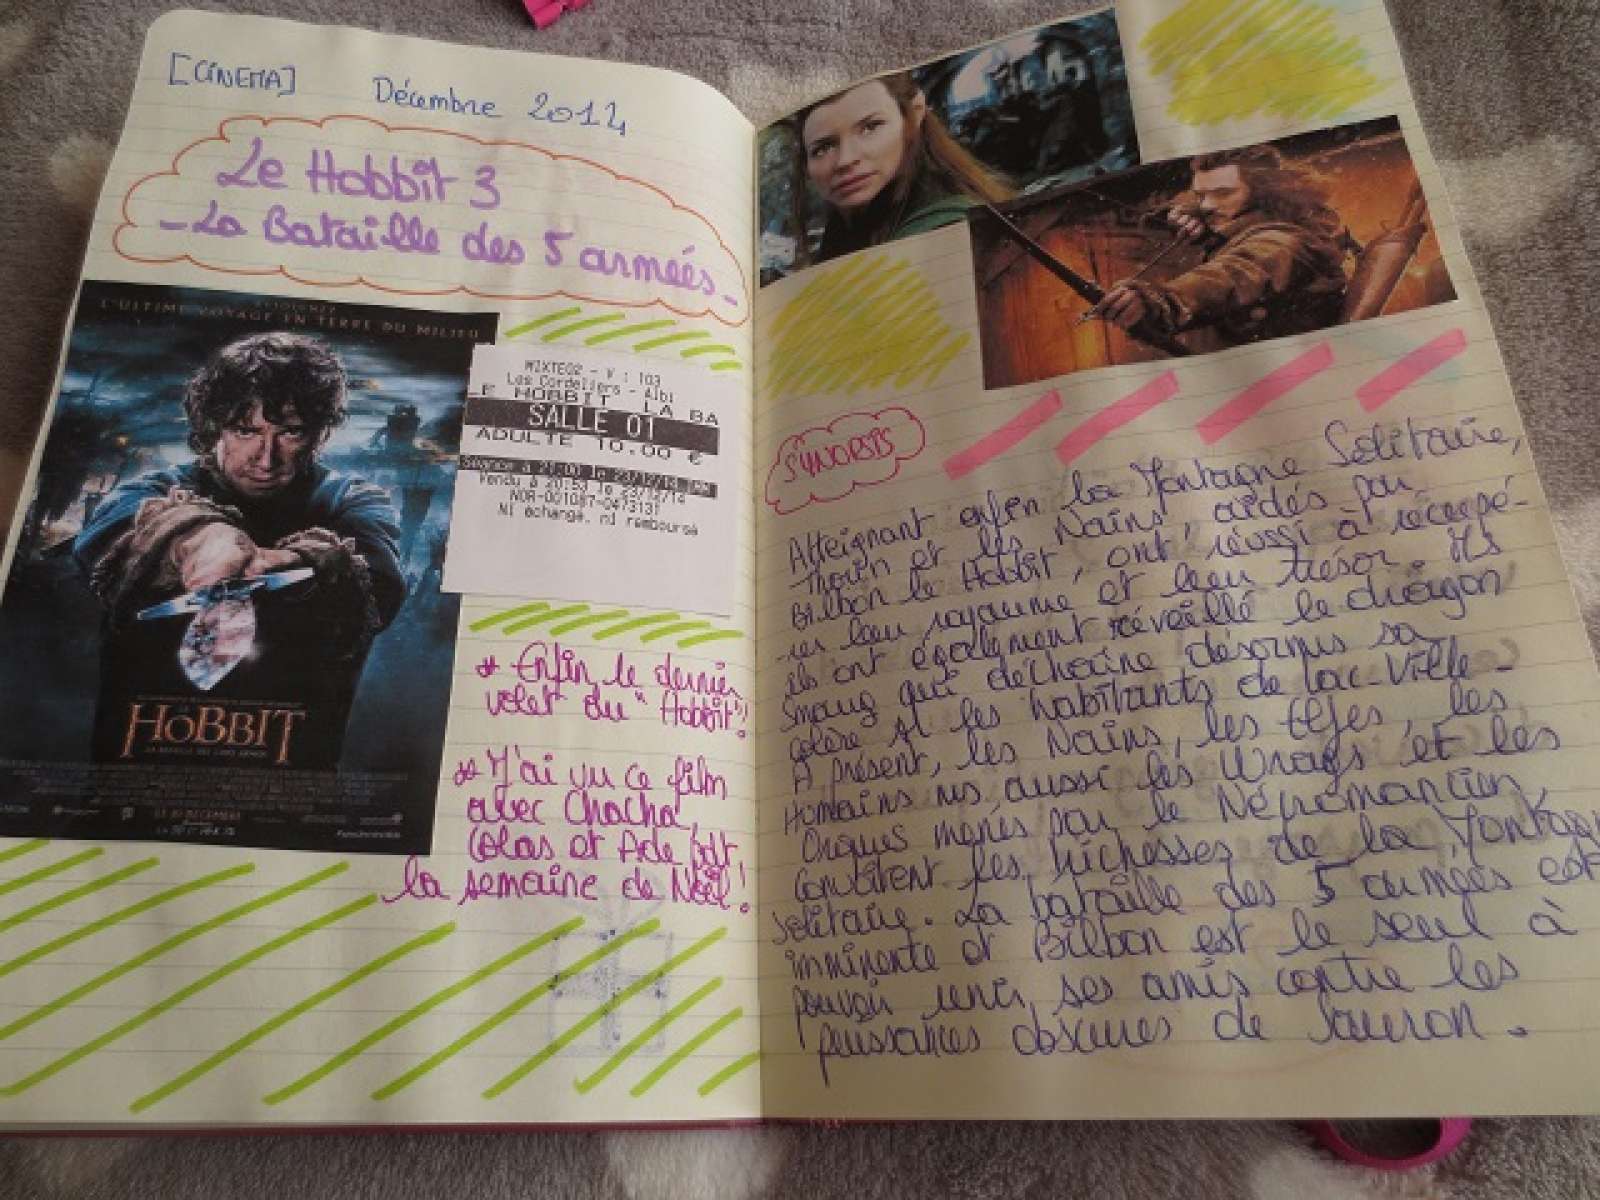 [CINEMA] Décembre 2014
Le Hobbit 3
- La Bataille des 5 armées -
L'ULTIME VOYAGE EN TERRE DU MILIEU
LE HOBBIT
LA BATAILLE DES CINQ ARMÉES
LE 10 DÉCEMBRE
MIXTE02 - V : 103
Les Cordeliers - Albi
LE HOBBIT LA BA
SALLE 01
ADULTE 10.00 €
Séance à 21:00 le 23/12/14
Vendu à 20:53 le 23/12/14
NOR-001087-0473131
Ni échangé, ni remboursé
* Enfin le dernier
volet du "Hobbit"!
* J'ai vu ce film
avec Chacha,
Colas et Ade pdt
la semaine de Noël!
SYNOPSIS
Atteignant enfin la Montagne Solitaire,
Thorin et les Nains, aidés par
Bilbon le Hobbit, ont réussi à récupé-
-rer leur royaume et leur trésor. Ils
ils ont également réveillé le dragon
Smaug qui déchaîne désormais sa
colère sur les habitants de Lac-Ville-
A présent, les Nains, les Elfes, les
Humains mais aussi les Wrags et les
Orques menés par le Nécromancien,
convoitent les richesses de la Montagne
Solitaire. La bataille des 5 armées est
imminente et Bilbon est le seul à
pouvoir unir ses amis contre les
puissances obscures de Sauron.